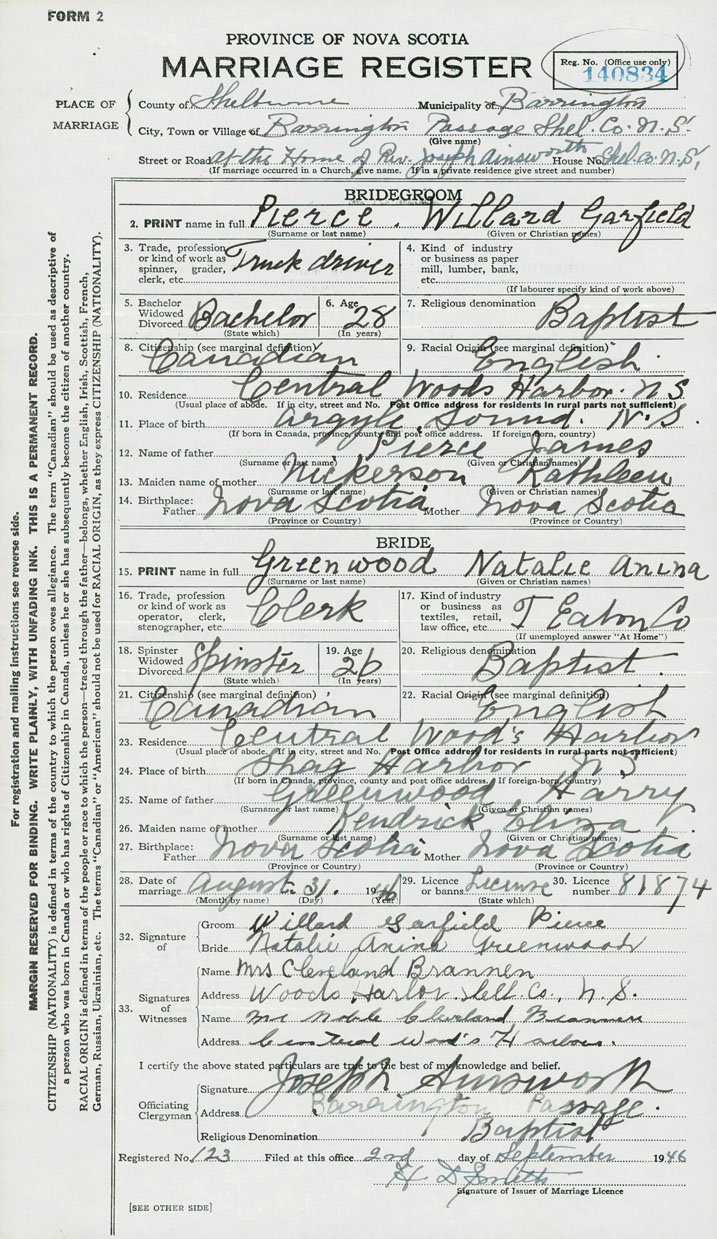 FORM 2
PROVINCE OF NOVA SCOTIA
MARRIAGE REGISTER
Reg. No. (Office use only)
140834
PLACE OF MARRIAGE
County of Shelburne Municipality of Barrington
City, Town or Village of Barrington Passage Shel. Co. N.S.
(Give name)
Street or Road at the Home of Rev. Joseph Ainsworth House No. Shel. Co. N.S.
(If marriage occurred in a Church, give name. If in a private residence give street and number)
BRIDEGROOM
2. PRINT name in full Pierce. Willard Garfield
(Surname or last name) (Given or Christian names)
3. Trade, profession or kind of work as spinner, grader, clerk, etc. Truck driver
4. Kind of industry or business as paper mill, lumber, bank, etc.
(If labourer specify kind of work above)
5. Bachelor Widowed Divorced Bachelor (State which)
6. Age 28 (In years)
7. Religious denomination Baptist
8. Citizenship (see marginal definition) Canadian
9. Racial Origin (see marginal definition) English
10. Residence Central Woods Harbor. N.S
(Usual place of abode. If in city, street and No. Post Office address for residents in rural parts not sufficient)
11. Place of birth Argyle Sound. N.S.
(If born in Canada, province, county and post office address. If foreign-born, country)
12. Name of father Pierce James
(Surname or last name) (Given or Christian names)
13. Maiden name of mother Nickerson Kathleen
(Surname or last name) (Given or Christian names)
14. Birthplace: Father Nova Scotia Mother Nova Scotia
(Province or Country) (Province or Country)
BRIDE
15. PRINT name in full Greenwood Natalie Anina
(Surname or last name) (Given or Christian names)
16. Trade, profession or kind of work as operator, clerk, stenographer, etc. Clerk
17. Kind of industry or business as textiles, retail, law office, etc. T Eaton Co
(If unemployed answer "At Home")
18. Spinster Widowed Divorced Spinster (State which)
19. Age 26 (In years)
20. Religious denomination Baptist.
21. Citizenship (see marginal definition) Canadian
22. Racial Origin (see marginal definition) English
23. Residence Central Wood's Harbor
(Usual place of abode. If in city, street and No. Post Office address for residents in rural parts not sufficient)
24. Place of birth Shag Harbor N S
(If born in Canada, province, county and post office address. If foreign-born, country)
25. Name of father Greenwood Harry
(Surname or last name) (Given or Christian names)
26. Maiden name of mother Kendrick Eliza
(Surname or last name) (Given or Christian names)
27. Birthplace: Father Nova Scotia Mother Nova Scotia
(Province or Country) (Province or Country)
28. Date of marriage August. 31. 1946
(Month by name) (Day) (Year)
29. Licence or banns License (State which)
30. Licence number 81874
32. Signature of
Groom Willard Garfield Pierce
Bride Natalie Anina Greenwood
33. Signatures of Witnesses
Name Mrs Cleveland Brannen
Address Woods Harbor Shell Co., N.S.
Name Mr Noble Cleveland Brannen
Address Central Wood's Harbor.
I certify the above stated particulars are true to the best of my knowledge and belief.
Officiating Clergyman
Signature Joseph Ainsworth
Address Barrington Passage.
Religious Denomination Baptist
Registered No. 123 Filed at this office 2nd day of September 1946
H D Smith
Signature of Issuer of Marriage Licence
[SEE OTHER SIDE]
For registration and mailing instructions see reverse side.
MARGIN RESERVED FOR BINDING. WRITE PLAINLY, WITH UNFADING INK. THIS IS A PERMANENT RECORD.
CITIZENSHIP (NATIONALITY) is defined in terms of the country to which the person owes allegiance. The term "Canadian" should be used as descriptive of
a person who was born in Canada or who has rights of Citizenship in Canada, unless he or she has subsequently become the citizen of another country.
RACIAL ORIGIN is defined in terms of the people or race to which the person—traced through the father—belongs, whether English, Irish, Scottish, French,
German, Russian, Ukrainian, etc. The terms "Canadian" or "American" should not be used for RACIAL ORIGIN, as they express CITIZENSHIP (NATIONALITY).